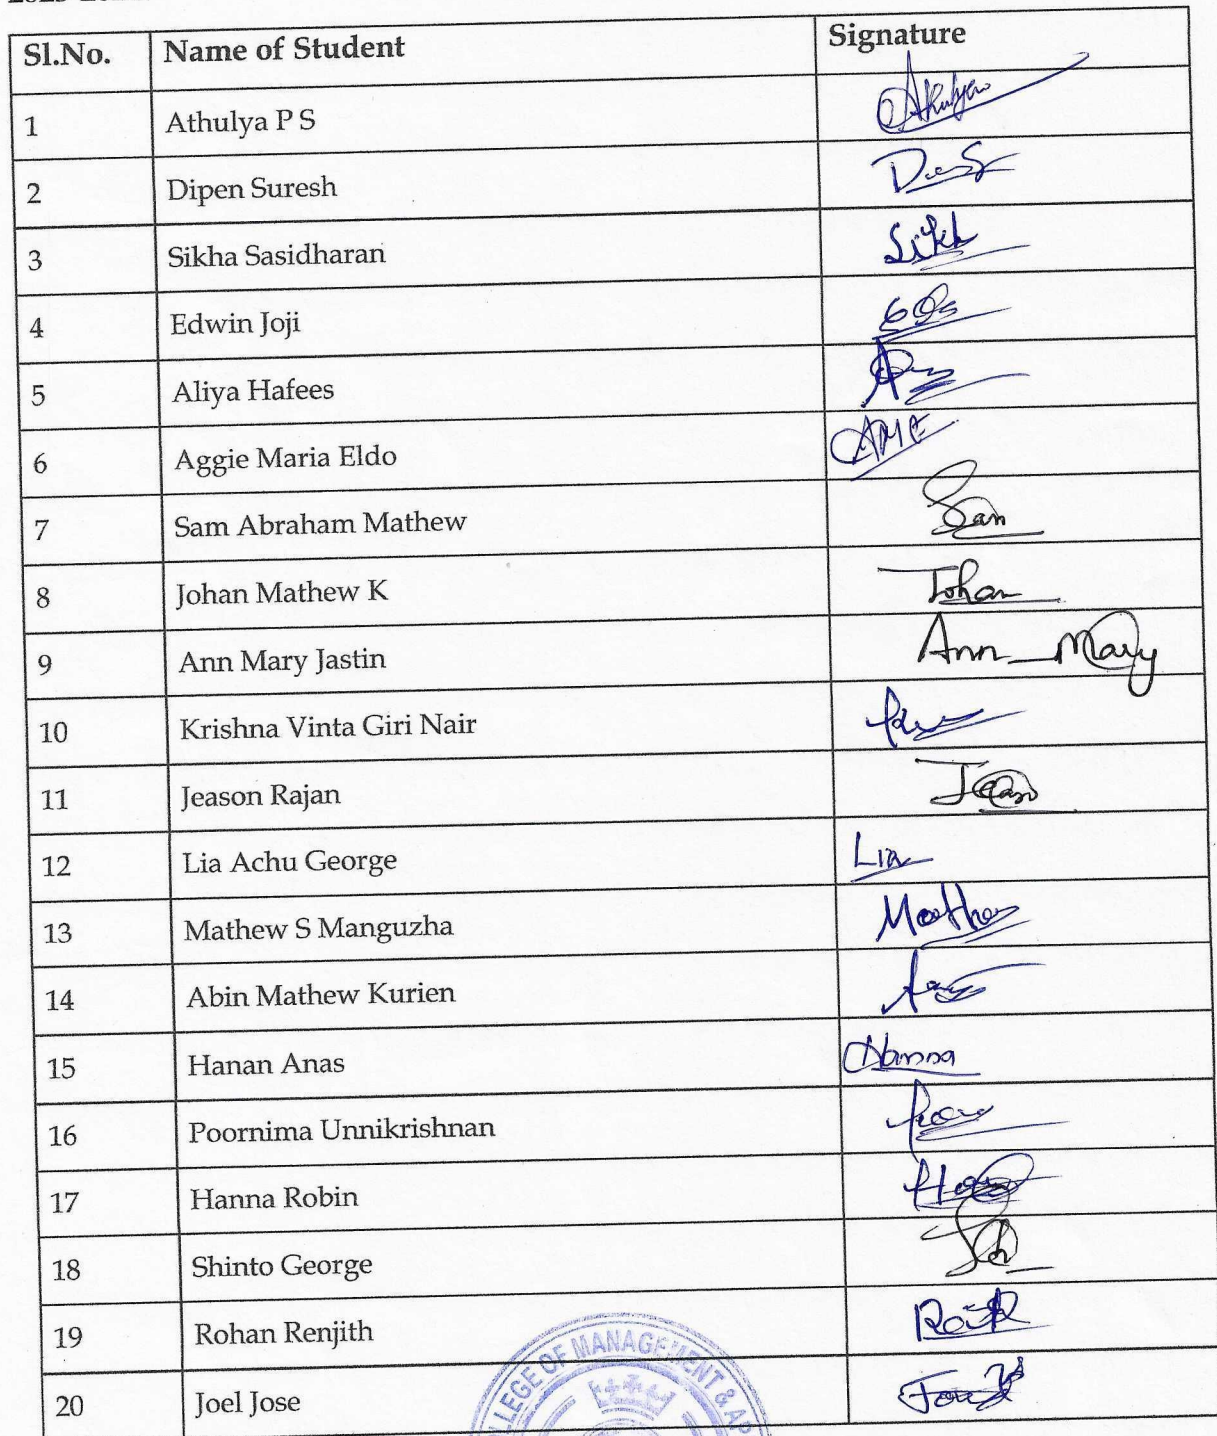 Sl.No. Name of Student Signature
1 Athulya P S Athulya
2 Dipen Suresh
3 Sikha Sasidharan Sikh
4 Edwin Joji
5 Aliya Hafees
6 Aggie Maria Eldo AME
7 Sam Abraham Mathew Sam
8 Johan Mathew K Johan
9 Ann Mary Jastin Ann Mary
10 Krishna Vinta Giri Nair
11 Jeason Rajan
12 Lia Achu George Lia
13 Mathew S Manguzha Mathew
14 Abin Mathew Kurien
15 Hanan Anas
16 Poornima Unnikrishnan
17 Hanna Robin
18 Shinto George
19 Rohan Renjith
20 Joel Jose
OF MANAGEMENT &